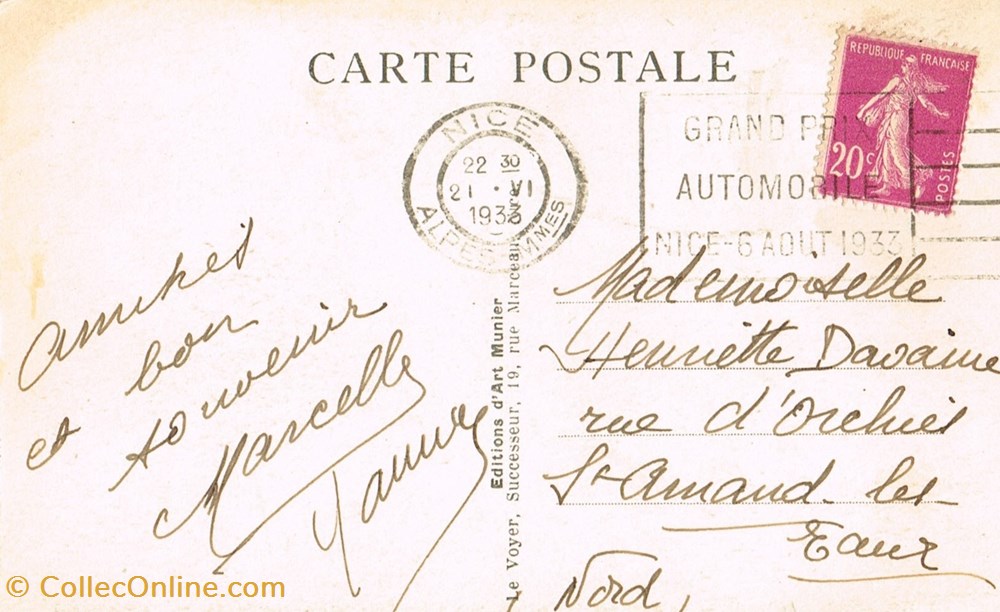 CARTE POSTALE
REPUBLIQUE FRANÇAISE
20c
POSTES
NICE
22 30
21 · VI
1933
ALPES MMES
GRAND PRIX
AUTOMOBILE
NICE-6 AOUT 1933
amitiés
et bon
souvenir
Marcelle
Editions d'Art Munier
Le Voyer, Successeur, 19, rue Marceau
Mademoiselle
Henriette Davaine
rue d'Orchies
St Amand les
Eaux
Nord
© CollecOnline.com